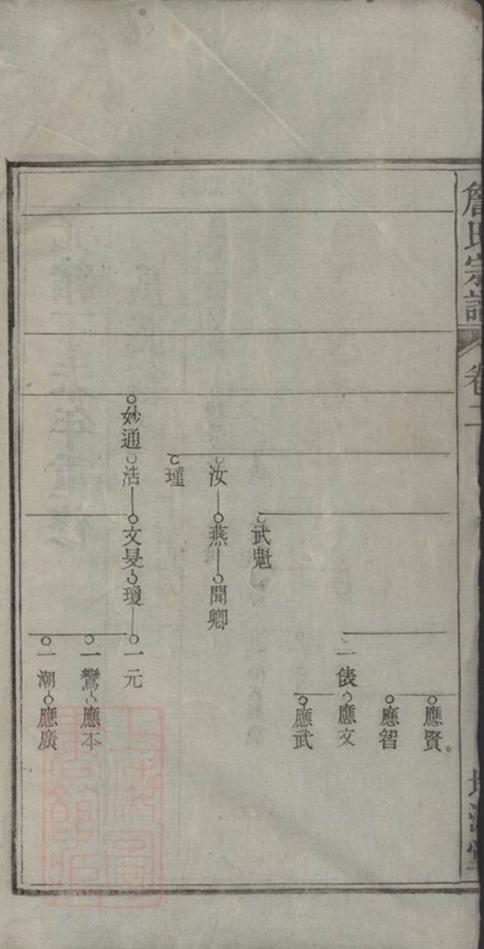 詹氏宗譜
卷二
應賢
應智
一俵 應文
應武
武魁
汝 燕 聞卿
瑾
妙通 浩 文旻 瓊 一元
一鸞 應本
一潮 應廣